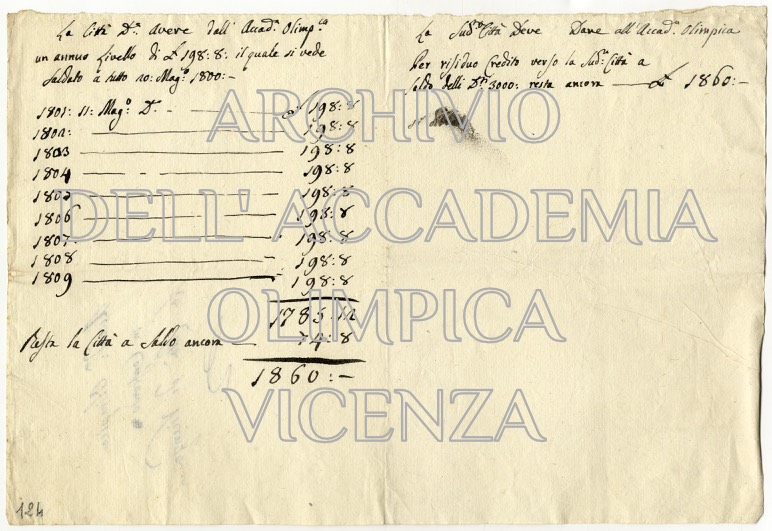 La Città D.ᵃ Avere dall' Accad.ᵃ Olimp.ᶜᵃ
un annuo Livello di £ 198:8: il quale si vede
Saldato a tutto 10: Mag.ᵒ 1800:-
1801: 11: Mag.ᵒ D.ᵒ - £ 198:8
1802: 198:8
1803 198:8
1804 198:8
1805 198:8
1806 198:8
1807: 198:8
1808 198:8
1809 198:8
1785:12
Resta la Città a Saldo ancora 74:8
1860:-
La Sud.ᵃ Città Deve Dare all'Accad.ᵃ Olimpica
Per residuo Credito verso la Sud.ᵃ Città a
Saldo delli D.ᵗⁱ 3000: resta ancora £ 1860:-
124
ARCHIVIO
DELL'ACCADEMIA
OLIMPICA
VICENZA